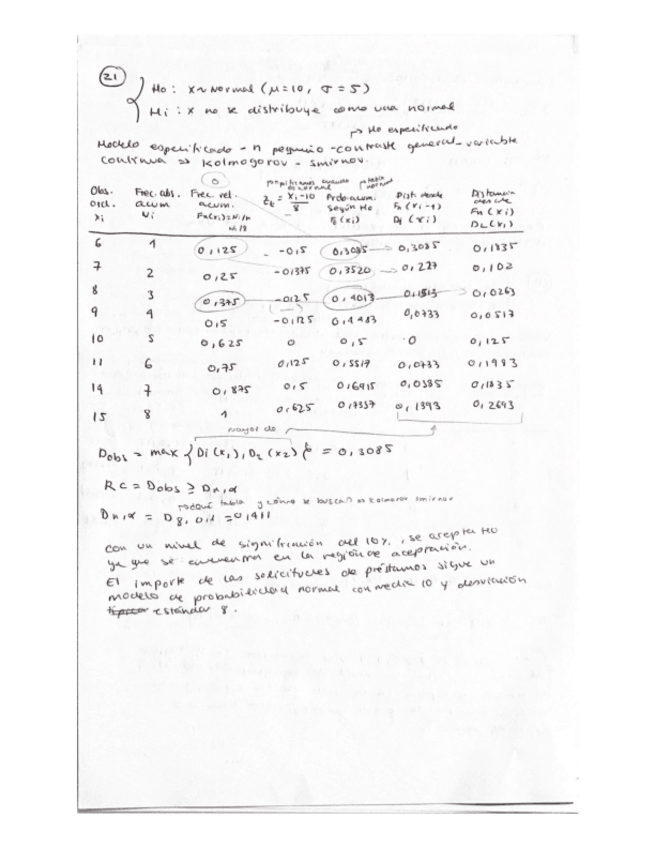 21
H₀ : X ~ Normal (μ = 10, σ = 5)
H₁ : X no se distribuye como una normal
→ H₀ especificando
Modelo especificado - n pequeño - contraste general - variable
continua ⇒ Kolmogorov - Smirnov.
0
Obs. Frec. abs. Frec. rel. Prob. acum. Dist. desde Distancia
ord. acum. acum. Zt = xi - 10 / 8 según H₀ Fn (xi-1) Fn (xi)
xi Ni Fn(xi) = Ni/n D1 (xi) D2 (xi)
Ni/8
6 1 0,125 -0,5 0,3085 0,3085 0,1835
7 2 0,25 -0,375 0,3520 0,227 0,102
8 3 0,375 -0,25 0,4013 0,1513 0,0263
9 4 0,5 -0,125 0,4483 0,0733 0,0517
10 5 0,625 0 0,5 0 0,125
11 6 0,75 0,125 0,5517 0,0733 0,1983
14 7 0,875 0,5 0,6915 0,0585 0,1835
15 8 1 0,625 0,7357 0,1393 0,2643
mayor de
Dobs = max { D1 (x1), D2 (x2) } = 0,3085
RC = Dobs ≥ Dn,α
→ qué tabla y cómo se busca → Kolmorov Smirnov
Dn,α = D8, 0,1 = 0,411
con un nivel de significación del 10%, se acepta H₀
ya que se encuentra en la región de aceptación.
El importe de las solicitudes de préstamos sigue un
modelo de probabilidad normal con media 10 y desviación
estándar 8.